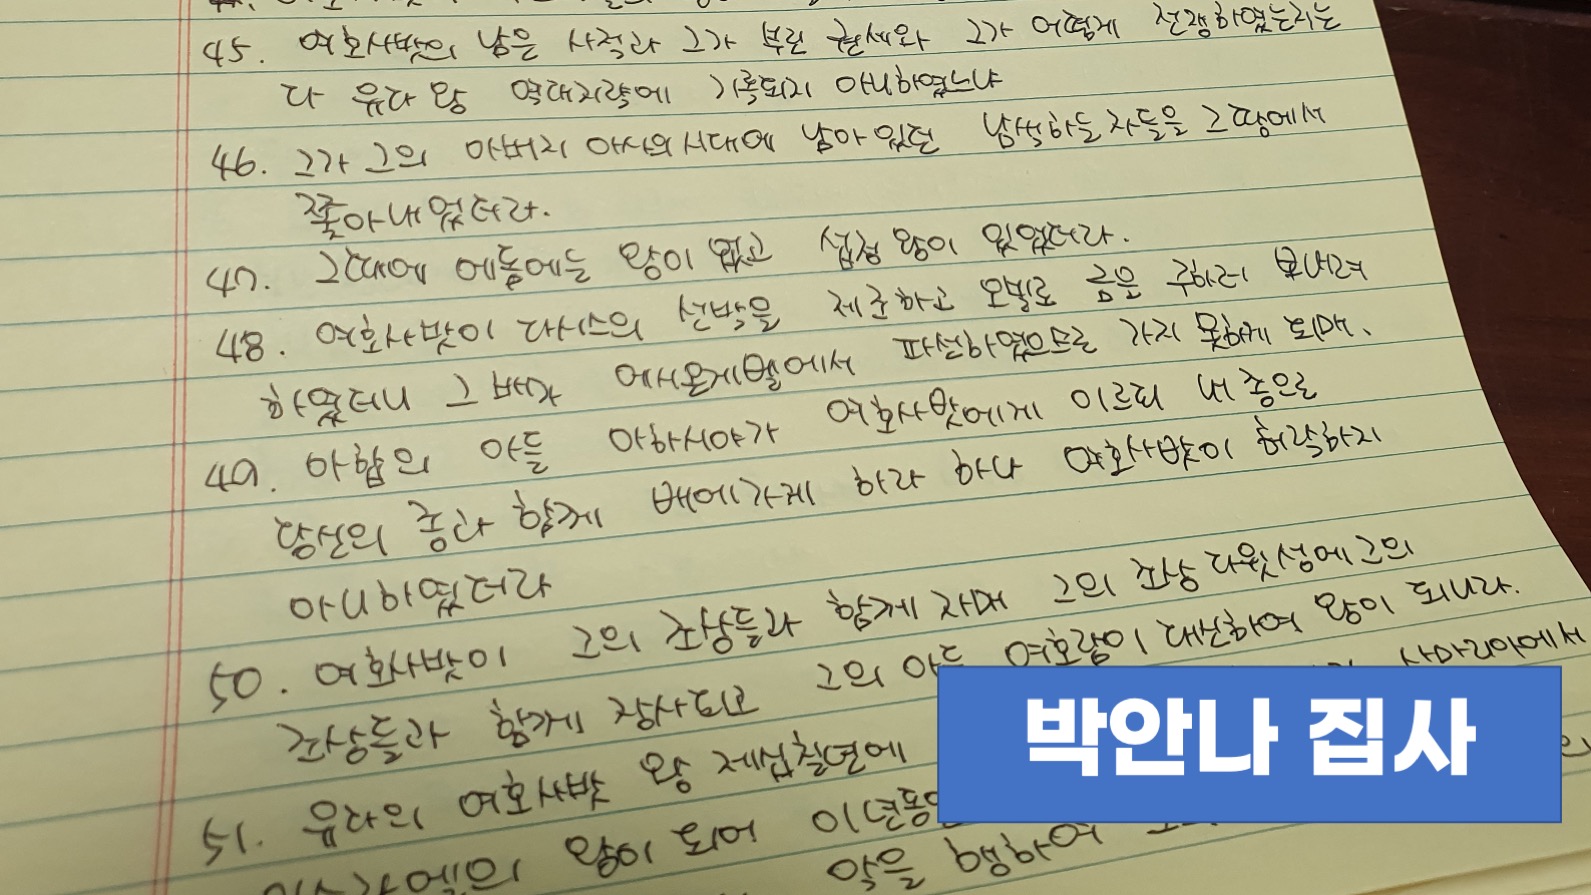 45. 여호사밧의 남은 사적과 그가 부린 권세와 그가 어떻게 전쟁하였는지는
다 유다 왕 역대지략에 기록되지 아니하였느냐
46. 그가 그의 아버지 아사의 시대에 남아 있던 남색하는 자들을 그 땅에서
쫓아내었더라.
47. 그때에 에돔에는 왕이 없고 섭정 왕이 있었더라.
48. 여호사밧이 다시스의 선박을 제조하고 오빌로 금을 구하러 보내려
하였더니 그 배가 에시온게벨에서 파선하였으므로 가지 못하게 되매.
49. 아합의 아들 아하시야가 여호사밧에게 이르되 내 종으로
당신의 종과 함께 배에가게 하라 하나 여호사밧이 허락하지
아니하였더라
50. 여호사밧이 그의 조상들과 함께 자매 그의 조상 다윗성에 그의
조상들과 함께 장사되고 그의 아들 여호람이 대신하여 왕이 되니라.
51. 유다의 여호사밧 왕 제십칠년에 사마리아에서
왕이 되어 이년동안
악을 행하여
박안나 집사